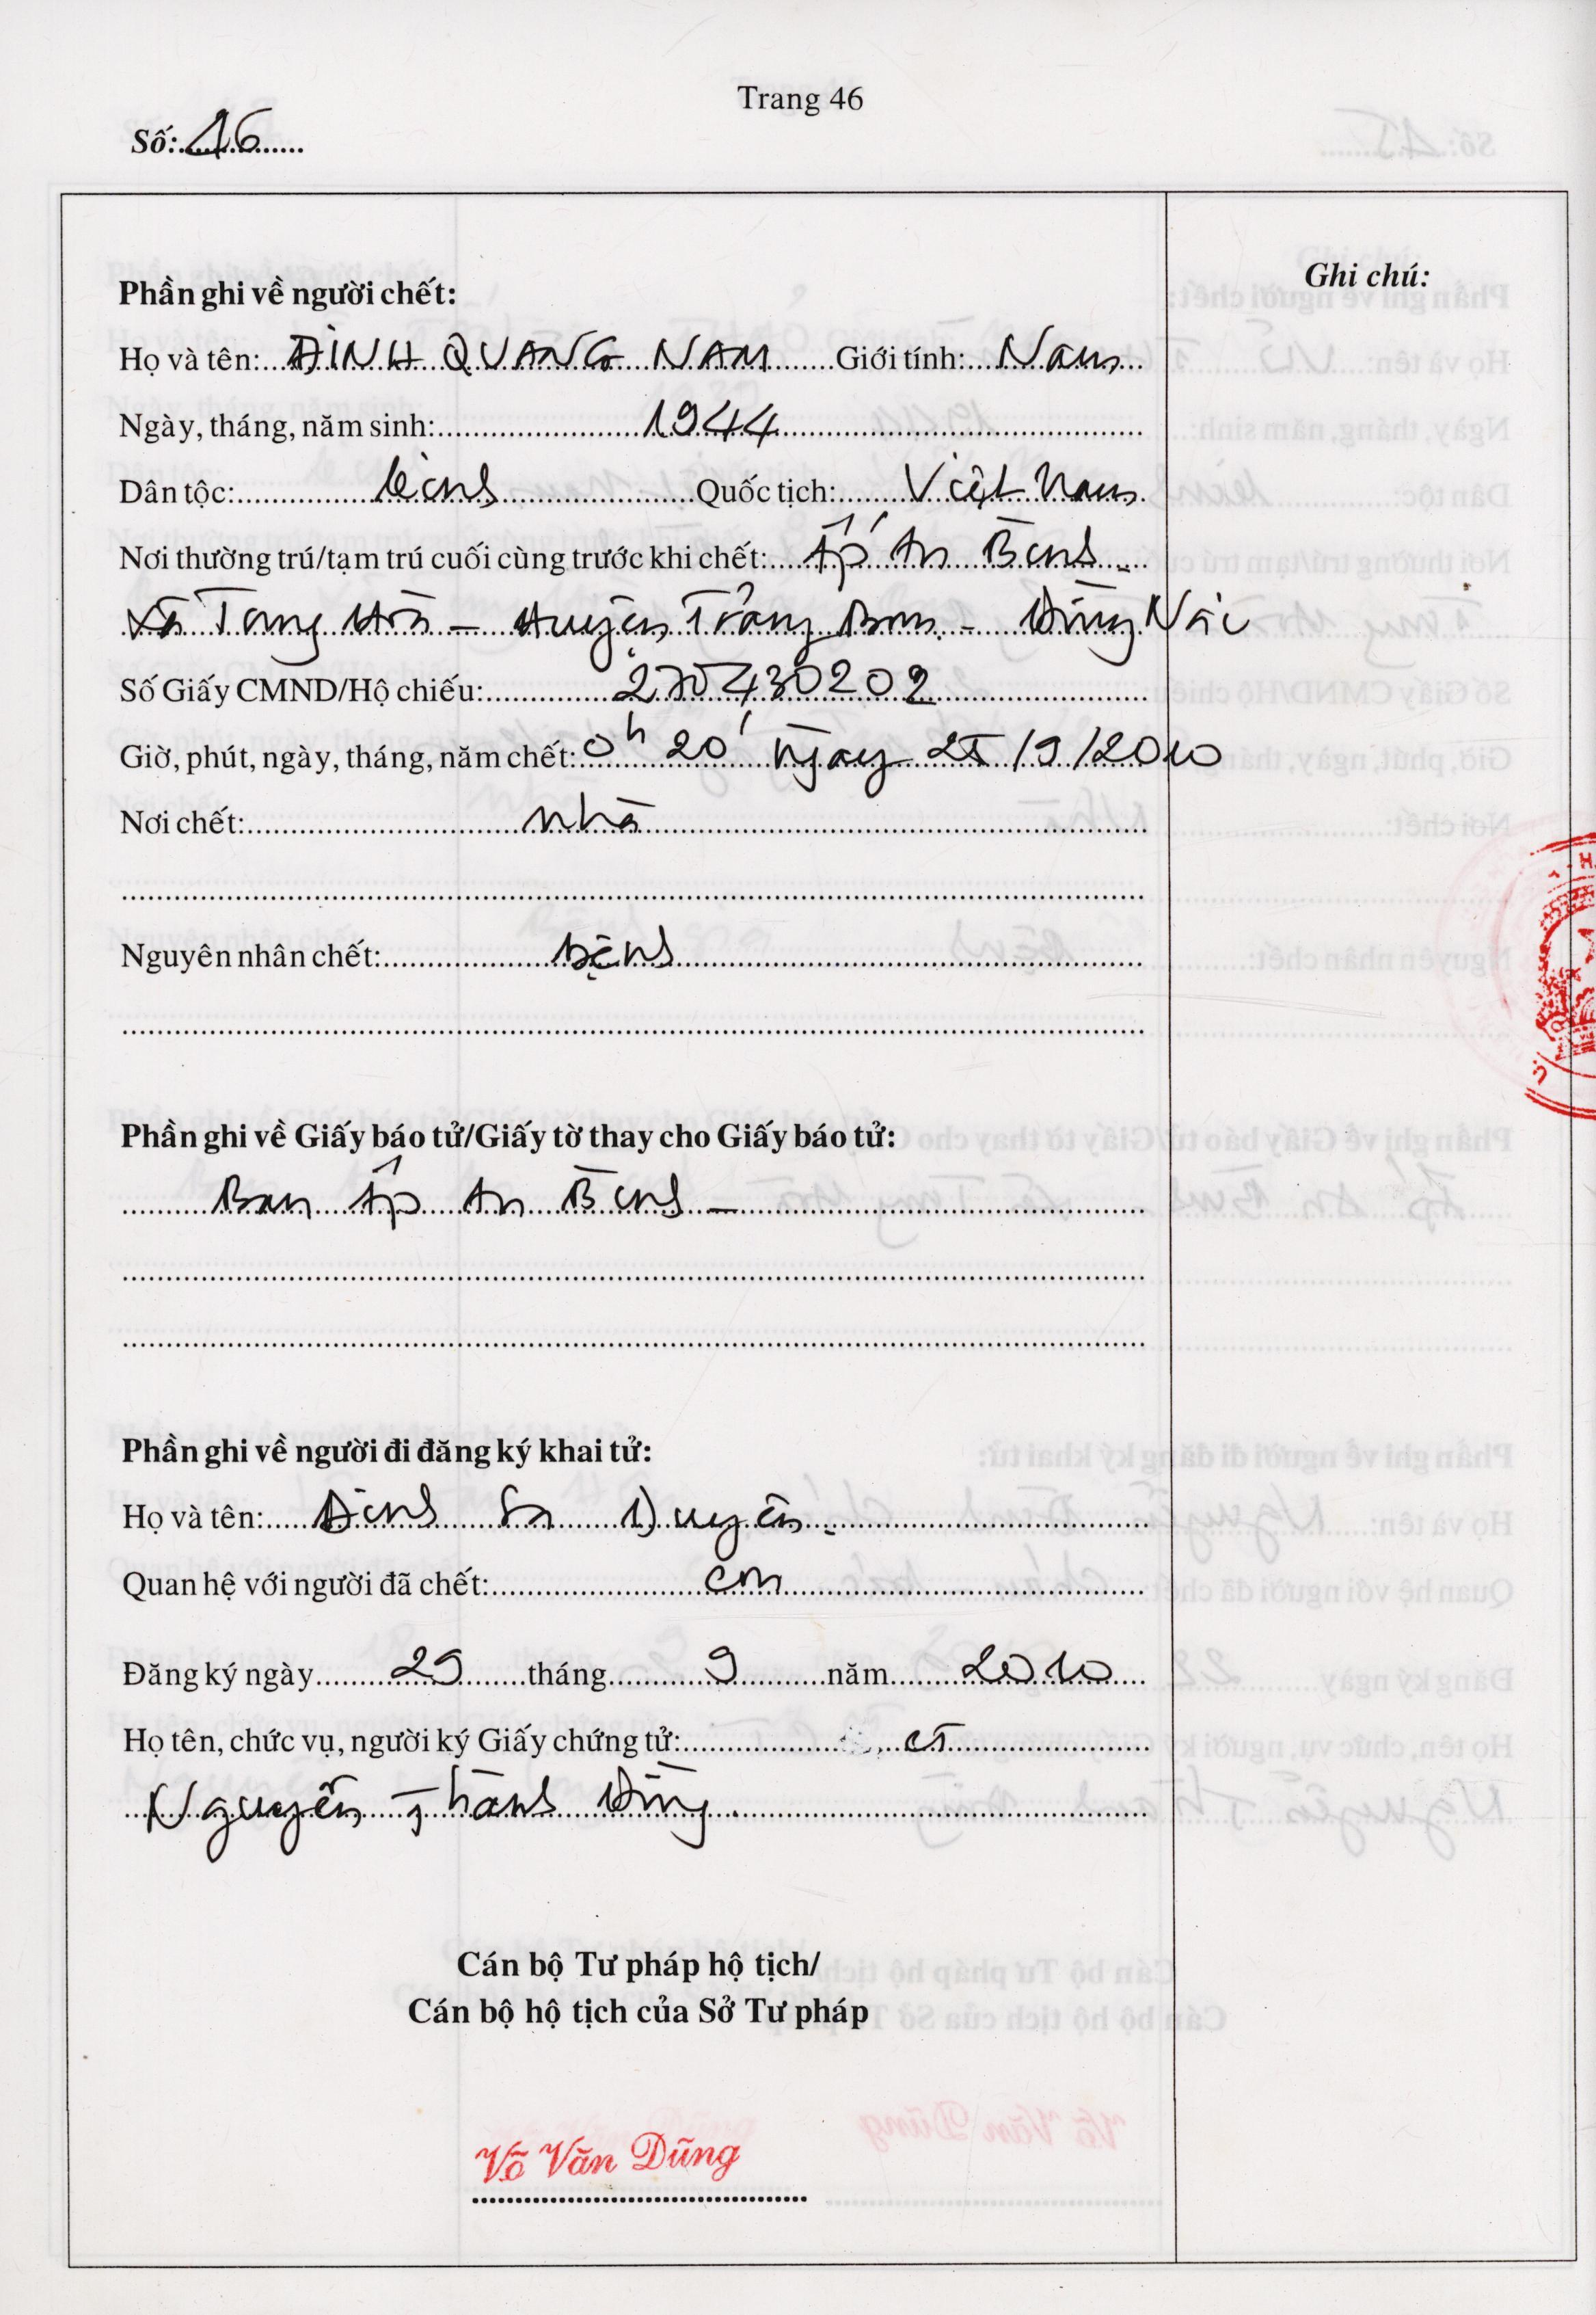 Trang 46
Số: 46
Ghi chú:
Phần ghi về người chết:
Họ và tên: ĐINH QUANG NAM Giới tính: Nam
Ngày, tháng, năm sinh: 1944
Dân tộc: kinh Quốc tịch: Việt Nam
Nơi thường trú/tạm trú cuối cùng trước khi chết: Ấp An Bình -
Xã Tây Hòa - Huyện Trảng Bom - Đồng Nai
Số Giấy CMND/Hộ chiếu: 270430202
Giờ, phút, ngày, tháng, năm chết: 0h 20' ngày 25/9/2010
Nơi chết: nhà
Nguyên nhân chết: bệnh
Phần ghi về Giấy báo tử/Giấy tờ thay cho Giấy báo tử:
Ban Ấp An Bình -
Phần ghi về người đi đăng ký khai tử:
Họ và tên: Đinh Duyên
Quan hệ với người đã chết: con
Đăng ký ngày 29 tháng 9 năm 2010
Họ tên, chức vụ, người ký Giấy chứng tử: CT
Nguyễn Thành
Cán bộ Tư pháp hộ tịch/
Cán bộ hộ tịch của Sở Tư pháp
Võ Văn Dũng